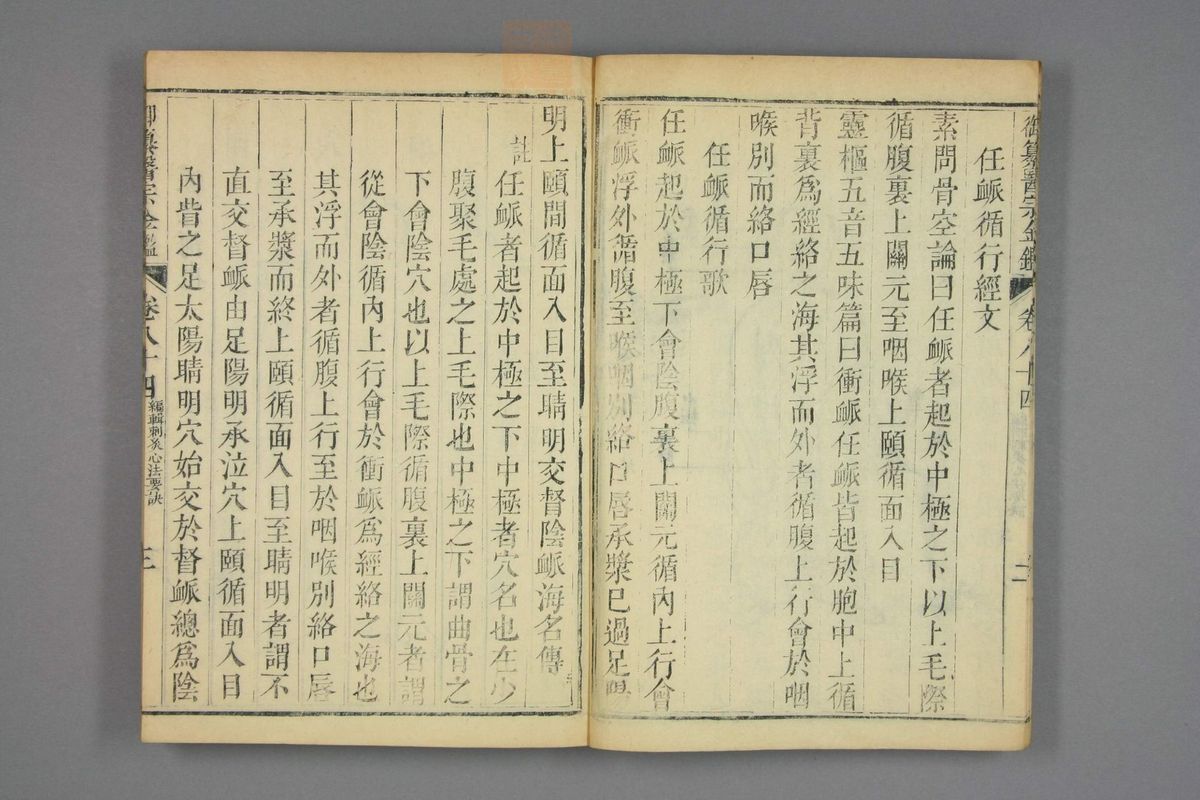 御纂醫宗金鑑 卷八十四 二
任脈循行經文
素問骨空論曰任脈者起於中極之下以上毛際
循腹裏上關元至咽喉上頤循面入目
靈樞五音五味篇曰衝脈任脈皆起於胞中上循
背裏爲經絡之海其浮而外者循腹上行會於咽
喉別而絡口唇
任脈循行歌
任脈起於中極下會陰腹裏上關元循內上行會
衝脈浮外循腹至喉咽別絡口唇承漿已過足陽
明上頤間循面入目至睛明交督陰脈海名傳
註
任脈者起於中極之下中極者穴名也在少
腹聚毛處之上毛際也中極之下謂曲骨之
下會陰穴也以上毛際循腹裏上關元者謂
從會陰循內上行會於衝脈爲經絡之海也
其浮而外者循腹上行至於咽喉別絡口唇
至承漿而終上頤循面入目至睛明者謂不
直交督脈由足陽明承泣穴上頤循面入目
內眥之足太陽睛明穴始交於督脈總爲陰
御纂醫宗金鑑 卷八十四 編輯刺灸心法要訣 三